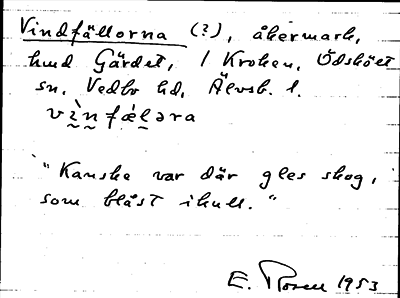 Vindfällorna (?), åkermark,
hmd Gärdet, 1 Kroken, Ödskölt
sn, Vedbo hd, Älvsb. l.
vìn fǽləra
"Kanske var där gles skog,
som blåst ikull."
E. Rosell 1953